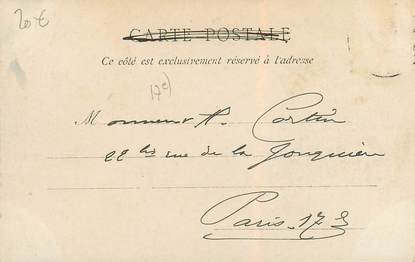 20€
CARTE POSTALE
Ce côté est exclusivement réservé à l'adresse
17e)
Monsieur A. Cortin
22 bis rue de la Jonquière
Paris. 17e